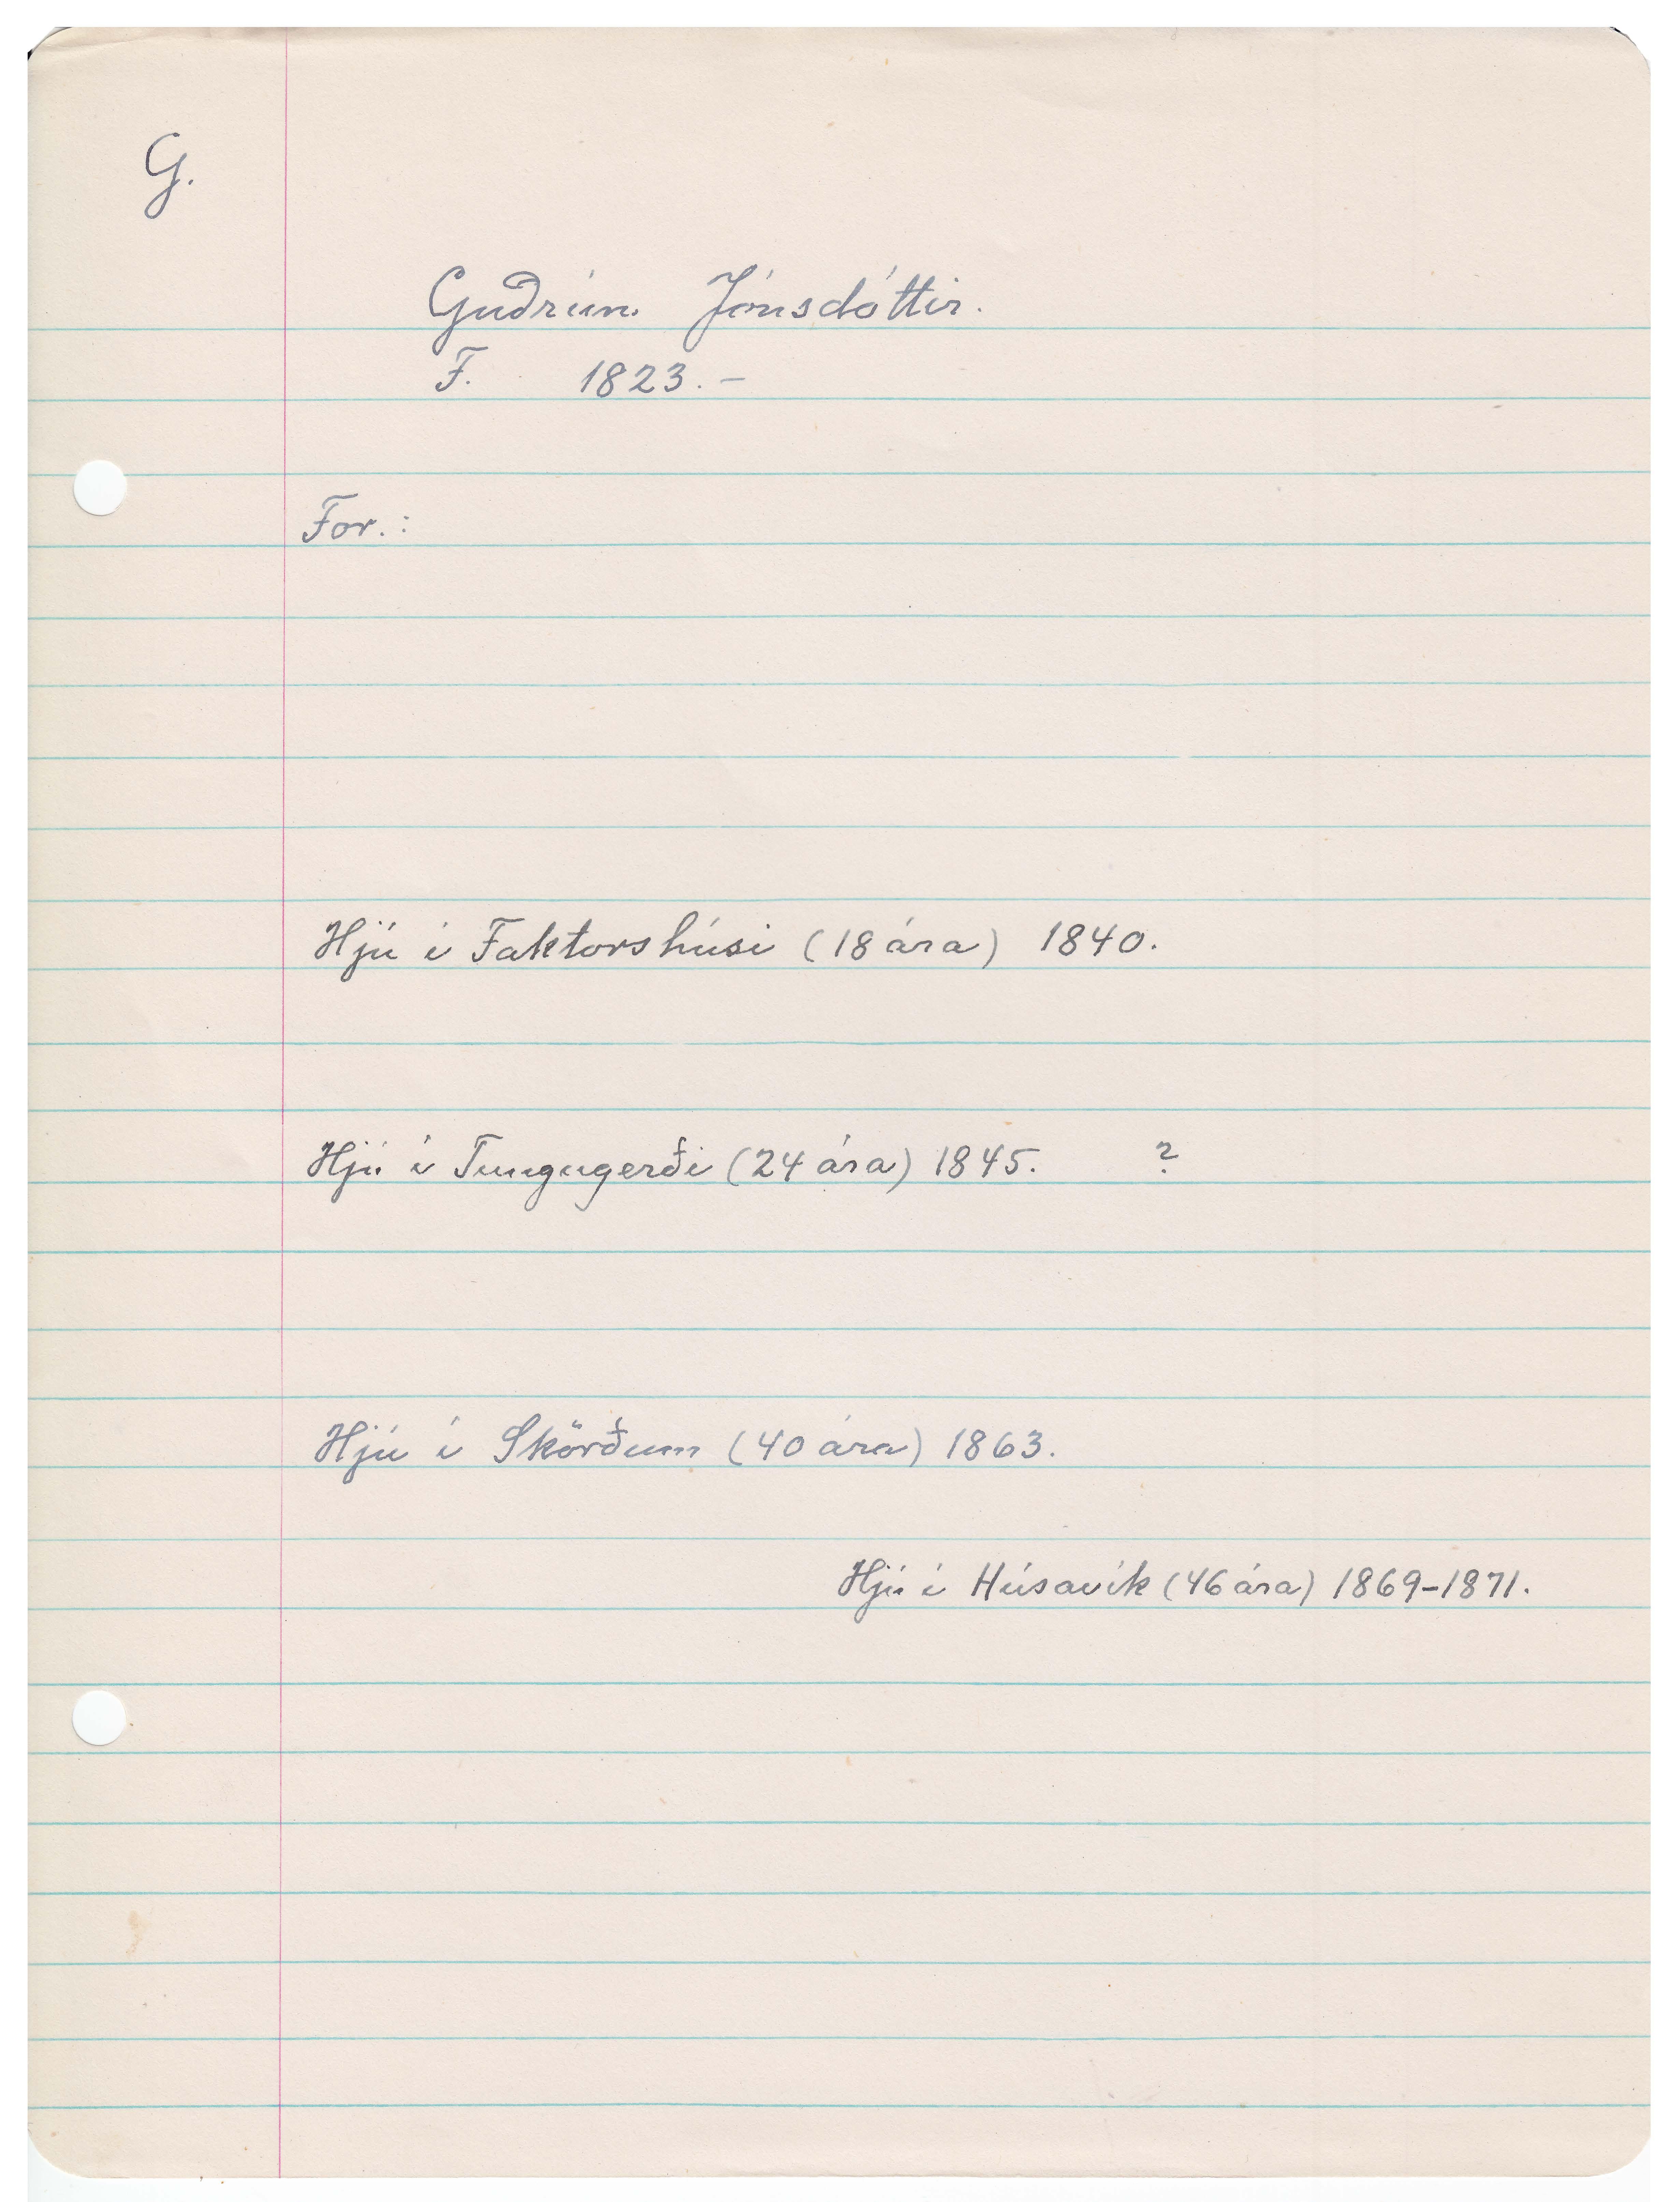 G.
Guðrún Jónsdóttir.
F. 1823. –
For. :
Hjú í Faktorshúsi (18 ára) 1840.
Hjú í Tungugerði (24 ára) 1845. ?
Hjú í Skörðum (40 ára) 1863.
Hjú í Húsavík (46 ára) 1869-1871.